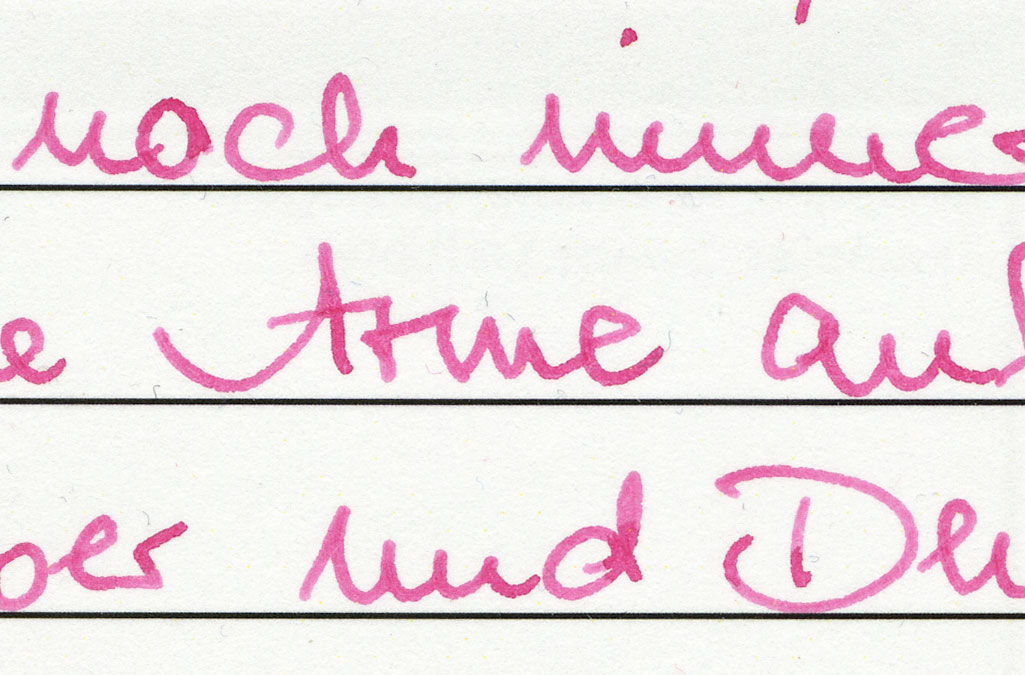 noch immer
e Arme auf
ber und